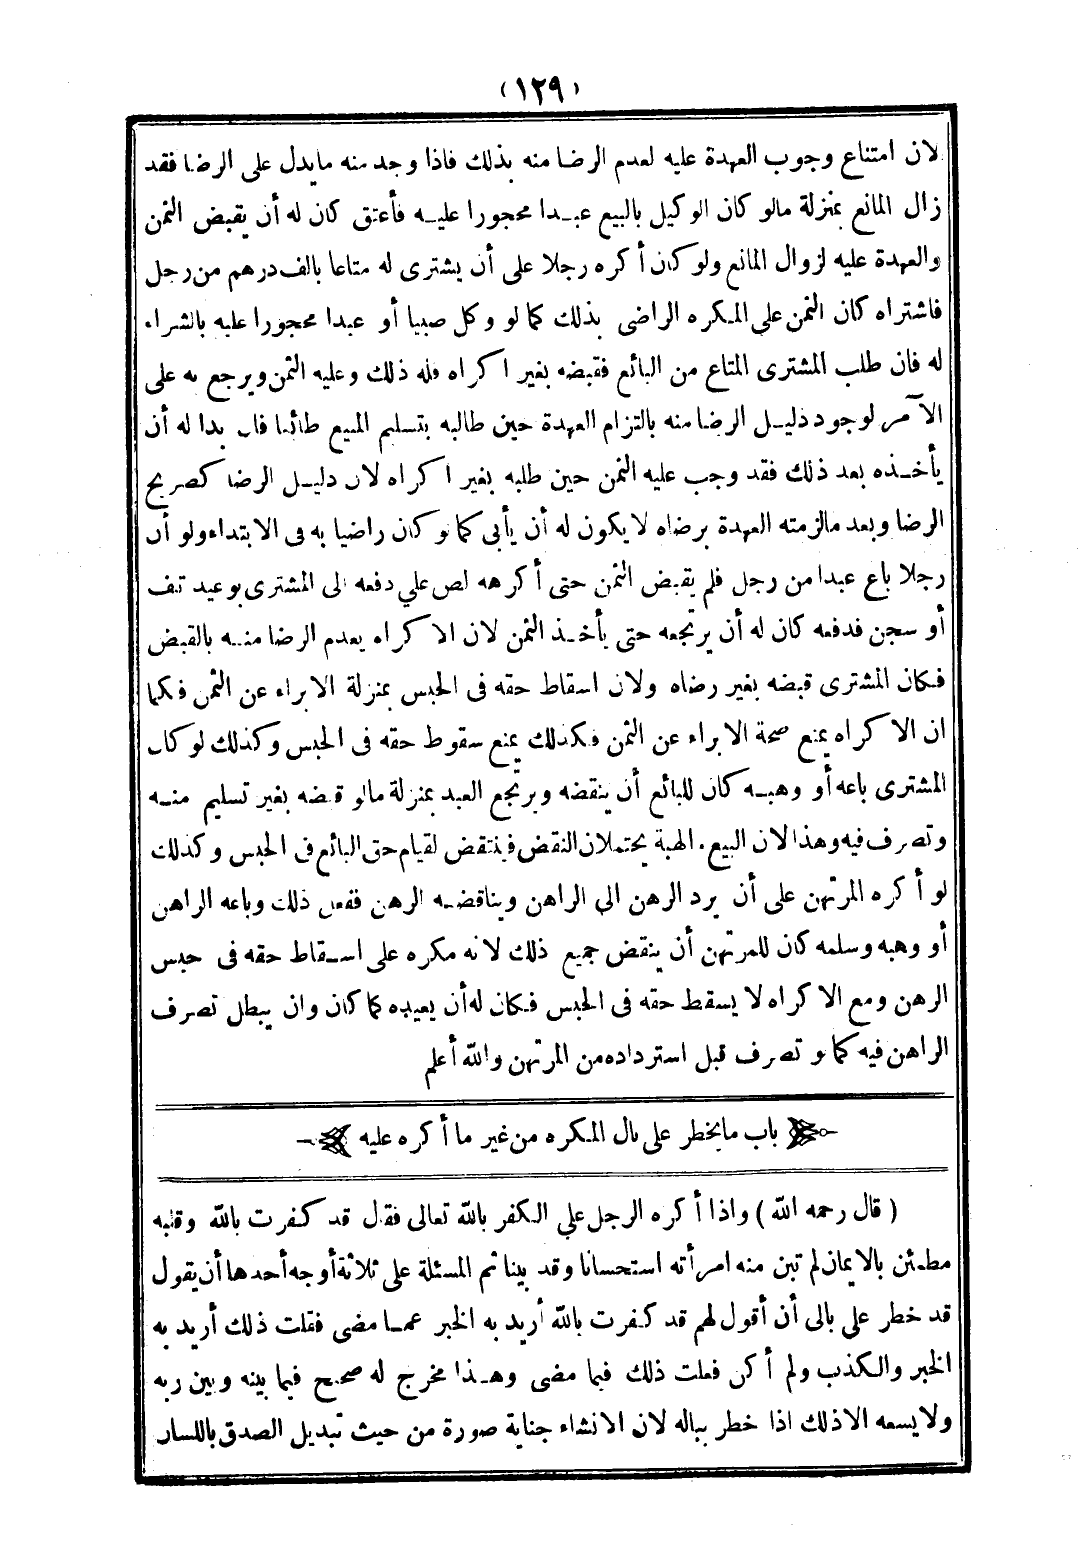 (١٢٩)
لان امتناع وجوب العهدة عليه لعدم الرضا منه بذلك فاذا وجد منه مايدل على الرضا فقد
زال المانع بمنزلة مالو كان الوكيل بالبيع عبدا محجورا عليه فأعتق كان له أن يقبض الثمن
والعهدة عليه لزوال المانع ولو كان أكره رجلا على أن يشترى له متاعا بالف درهم من رجل
فاشتراه كان الثمن على المكره الراضى بذلك كما لو وكل صبيا أو عبدا محجورا عليه بالشراء
له فان طلب المشترى المتاع من البائع فقبضه بغير اكراه فله ذلك وعليه الثمن ويرجع به على
الآمر لوجود دليل الرضا منه بالتزام العهدة حين طالبه بتسليم المبيع طائعا فان بدا له أن
يأخذه بعد ذلك فقد وجب عليه الثمن حين طلبه بغير اكراه لان دليل الرضا كصريح
الرضا وبعد مالزمته العهدة برضاه لا يكون له أن يأبى كما لو كان راضيا به فى الابتداء ولو أن
رجلا باع عبدا من رجل فلم يقبض الثمن حتى أكرهه لص علي دفعه الى المشترى بوعيد تلف
أو سجن فدفعه كان له أن يرتجعه حتى يأخذ الثمن لان الاكراه يعدم الرضا منه بالقبض
فكان المشترى قبضه بغير رضاه ولان اسقاط حقه فى الحبس بمنزلة الابراء عن الثمن فكما
ان الاكراه يمنع صحة الابراء عن الثمن فكذلك يمنع سقوط حقه فى الحبس وكذلك لو كان
المشترى باعه أو وهبه كان للبائع أن ينقضه ويرتجع العبد بمنزلة مالو قبضه بغير تسليم منه
وتصرف فيه وهذا لان البيع والهبة يحتملان النقض فينتقض لقيام حق البائع فى الحبس وكذلك
لو أكره المرتهن على أن يرد الرهن الى الراهن ويناقضه الرهن ففعل ذلك وباعه الراهن
أو وهبه وسلمه كان للمرتهن أن ينقض جميع ذلك لانه مكره على اسقاط حقه فى حبس
الرهن ومع الاكراه لا يسقط حقه فى الحبس فكان له أن يعيده كما كان وان يبطل تصرف
الراهن فيه كما لو تصرف قبل استرداده من المرتهن والله أعلم
باب مايخطر على بال المكره من غير ما أكره عليه
( قال رحمه الله ) واذا أكره الرجل علي الكفر بالله تعالى فقال قد كفرت بالله وقلبه
مطمئن بالايمان لم تبن منه امرأته استحسانا وقد بينا ثم المسئلة على ثلاثة أوجه أحدها أن يقول
قد خطر على بالى أن أقول لهم قد كفرت بالله أريد به الخبر عما مضى فقلت ذلك أريد به
الخبر والكذب ولم أكن فعلت ذلك فيما مضى وهذا مخرج له صحيح فيما بينه وبين ربه
ولا يسعه الا ذلك اذا خطر بباله لان الانشاء جناية صورة من حيث تبديل الصدق باللسان